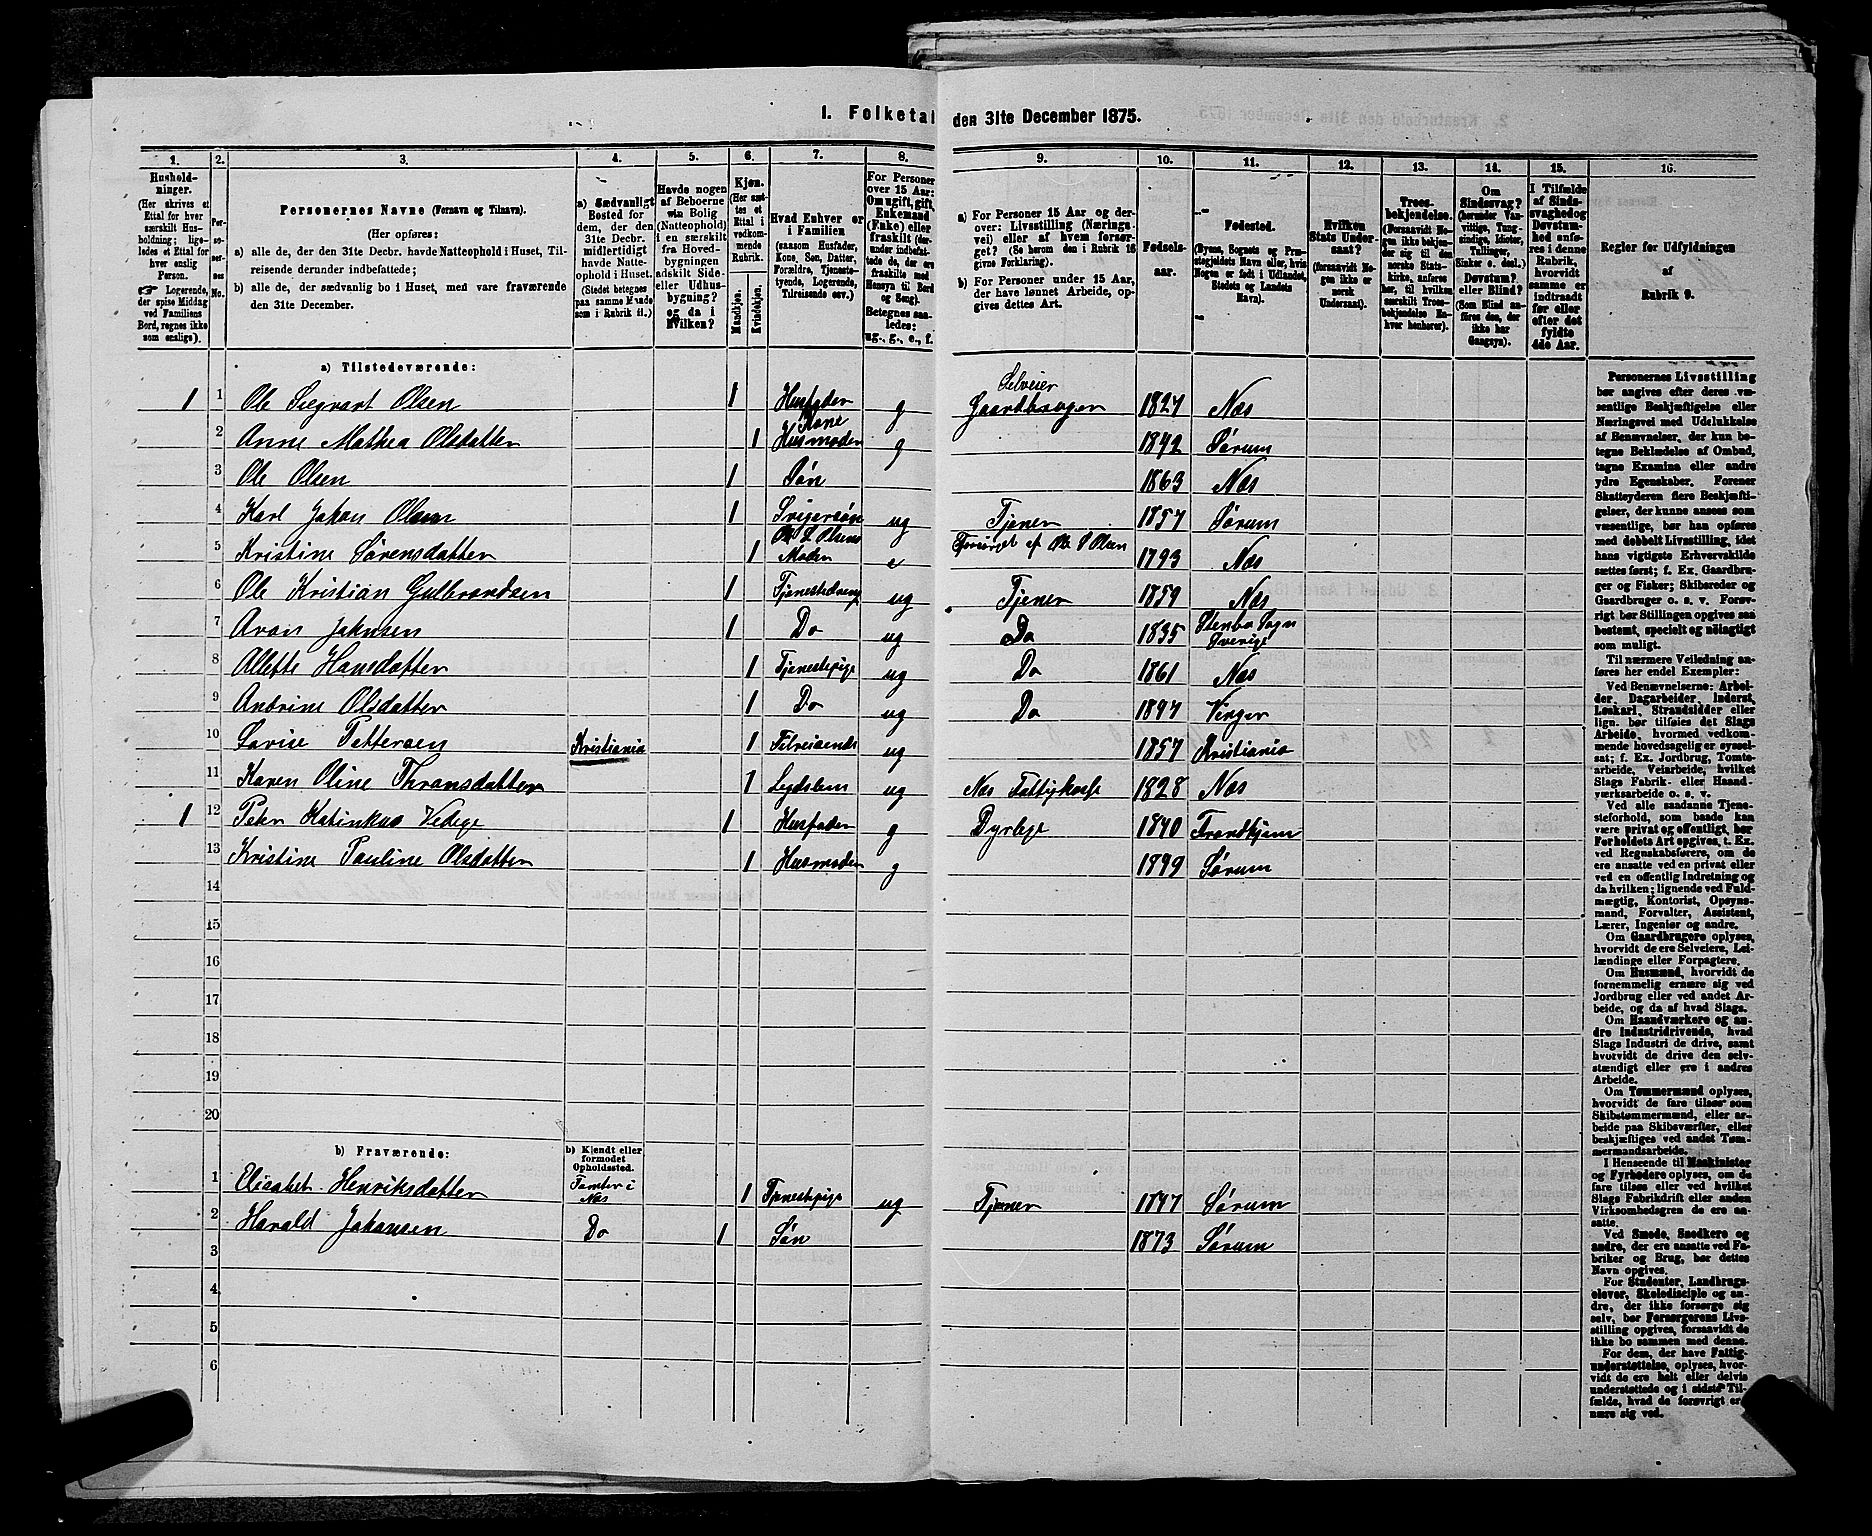 1. Folketal den 31te December 1875.
1. 2. 3. 4. 5. 6. 7. 8. 9. 10. 11. 12. 13. 14. 15. 16.
Husholdninger.
(Her skrives et Ettal for hver særskilt Husholdning; ligeledes et Ettal for hver enslig Person.
Logerende, der spise Middag ved Familiens Bord, regnes ikke som enslige).
Personernes No.
Personernes Navne (Fornavn og Tilnavn).
(Her opføres:
a) alle de, der den 31te Decbr. havde Natteophold i Huset, Tilreisende derunder indbefattede;
b) alle de, der sædvanlig bo i Huset, med vare fraværende den 31te December.
a) Sædvanligt Bosted for dem, der den 31te Decbr. midlertidigt havde Natteophold i Huset.
(Stedet betegnes paa samme Maade som i Rubrik 11.)
Havde nogen af Beboerne sin Bolig (Natteophold) i en særskilt fra Hovedbygningen adskilt Side- eller Udhusbygning? og da i Hvilken?
Kjøn.
(Her sættes et Ettal i vedkommende Rubrik.
Mandkjøn. Kvindekjøn.
Hvad Enhver er i Familien
(saasom Husfader, Kone, Søn, Datter, Forældre, Tjenestetyende, Logerende, Tilreisende osv.)
For Personer over 15 Aar: Om ugift, gift, Enkemand (Enke) eller fraskilt (derunder indbefattede de, der ere fraskilte med Hensyn til Bord og Seng).
Betegnes saaledes:
ug., g., e., f.
a) For Personer 15 Aar og derover: Livsstilling (Næringsvei) eller af hvem forsørget? (Se herom den i Rubrik 16 givne Forklaring).
b) For Personer under 15 Aar, der have lønnet Arbeide, opgives dettes Art.
Fødselsaar.
Fødested.
(Byens, Sognets og Præstegjeldets Navn eller, hvis Nogen er født i Udlandet, Stedets og Landets Navn).
Hvilken Stats Undersaat?
(forsaavidt Nogen ikke er norsk Undersaat).
Troesbekjendelse.
(Forsaavidt Nogen ikke bekjender sig til den norske Statskirke, anføres her, til hvilken særskilt Troesbekjendelse Enhver henhører).
Om Sindssvag? (herunder Vanvittige, Tungsindige, Idioter, Tullinger, Sinker o. desl.)
Døvstum? eller Blind?
(Som Blind anføres den, der ikke har Gangsyn).
I Tilfælde af Sindssvaghed og Døvstumhed anføres i denne Rubrik, hvorvidt samme er indtraadt før eller efter det fyldte 4de Aar.
Regler for Udfyldningen af Rubrik 9.
a) Tilstedeværende:
1 1 Ole Siegvart Olsen 1 Husfader g Selveier Gaardbruger 1827 Næs
2 Anne Mathea Olsdatter 1 Kone Husmoder g 1842 Sørum
3 Ole Olsen 1 Søn 1863 Næs
4 Karl Johan Olsen 1 Svigersøn ug Tjener 1857 Sørum
5 Kristine Sørensdatter 1 Ole S Olsens Moder e Forsørget af Ole S Olsen 1793 Næs
6 Ole Kristian Gulbrandsen 1 Tjenestedreng ug Tjener 1859 Næs
7 Aron Johnsen 1 Do ug Do 1835 Stenbo Sogn Sverige
8 Alette Hansdatter 1 Tjenestepige ug Do 1861 Næs
9 Antrine Olsdatter 1 Do ug Do 1847 Vinger
10 Lovise Pettersen Kristiania 1 Tilreisende ug 1857 Kristiania
11 Karen Oline Thransdatter 1 Legdslem ug Næs Fattigkasse 1828 Næs
1 12 Peter Katinkus Vedege 1 Husfader g Dyrlege 1840 Trondhjem
13 Kristine Pauline Olsdatter 1 Husmoder g 1849 Sørum
14
15
16
17
18
19
20
b) Fraværende:
b) Kjendt eller formodet Opholdssted.
1 Elisabet Henriksdatter Tomter i Næs 1 Tjenestepige ug Tjener 1847 Sørum
2 Harald Johansen Do 1 Søn 1873 Sørum
3
4
5
6
Personernes Livsstilling
bør angives efter deres væ-
sentlige Beskjæftigelse eller
Næringsvei med Udelukkelse
af Benævnelser, der kun be-
tegne Beklædelse af Ombud,
tagne Examina eller andre
ydre Egenskaber. Forener
Skatteyderen flere Beskjæfti-
gelser, der kunne ansees som
væsentlige, bør han opføres
med dobbelt Livsstilling, idet
hans vigtigste Erhvervskilde
sættes først; f. Ex. Gaardbru-
ger og Fisker; Skibsreder og
Gaardbruger o. s. v. Forøv-
rigt bør Stillingen opgives saa
bestemt, specielt og nøiagtigt
som muligt.
Til nærmere Veiledning an-
føres her endel Exempler:
Ved Benævnelserne: Arbei-
der, Dagarbeider, Inderst,
Løskarl, Strandsidder eller
lign. bør tilføies det Slags
Arbeide, hvormed vedkom-
mende hovedsagelig er syssel-
sat; f. Ex. Jordbrug, Tomte-
arbeide, Veiarbeide, hvilket
Slags Fabrik- eller Haand-
værksarbeide o. s. v.
Ved alle saadanne Tjene-
steforhold, som baade kan
være privat og offentlig, bør
Forholdets Art opgives, t. Ex.
ved Regnskabsførere, om de
ere ansatte ved en privat eller
ved en offentlig Indretning og
da hvilken; lignende ved Fuld-
mægtig, Kontorist, Opsyns-
mand, Forvalter, Assistent,
Lærer, Ingeniør og andre.
Om Gaardbrugere oplyses,
hvorvidt de ere Selveiere, Lei-
lændinge eller Forpagtere.
Om Husmænd, hvorvidt de
fornemmelig ernære sig ved
Jordbrug eller ved andet Ar-
beide, og da af hvad Slags.
Om Haandværkere og an-
dre Industridrivende, hvad
Slags Industri de drive, samt
hvorvidt de drive den selv-
stændigt eller ere i andres
Arbeide.
Om Tømmermænd oplyses,
hvorvidt de fare tilsøs som
Skibstømmermænd, eller ar-
beide paa Skibsværfter, eller
beskjæftiges ved andet Tøm-
mermandsarbeide.
I Henseende til Maskinister
og Fyrbødere oplyses, om de
fare tilsøs eller ved hvilket
Slags Fabrikdrift eller anden
Virksomhedsgren de ere an-
satte.
Ved Smede, Snedkere og
andre, der ere ansatte ved Fa-
briker og Brug, bør dettes
Navn opgives.
For Studenter, Landbrugs-
elever, Skoledisciple og an-
dre, der ikke forsørge sig
selv, bør Forsørgerens Livs-
stilling opgives, forsaavidt de
ikke bo sammen med denne.
For dem, der have Fattig-
understøttelse, oplyses, hvor-
vidt de ere helt eller delvis
understøttede og i sidste Til-
fælde, hvad de forøvrigt er-
nære sig ved.